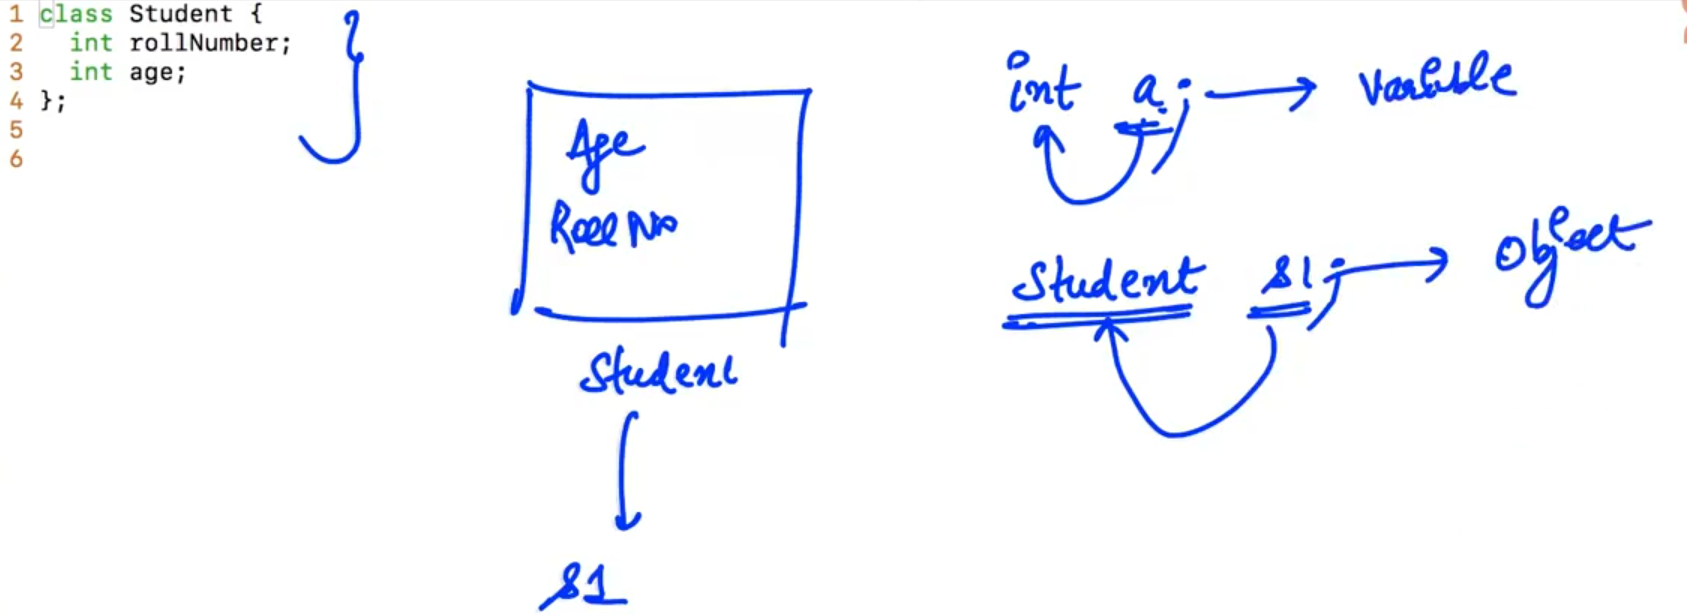 1 class Student {
2 int rollNumber;
3 int age;
4 };
5
6
Age
Roll No
Student
S1
int a; → Variable
Student S1; → Object